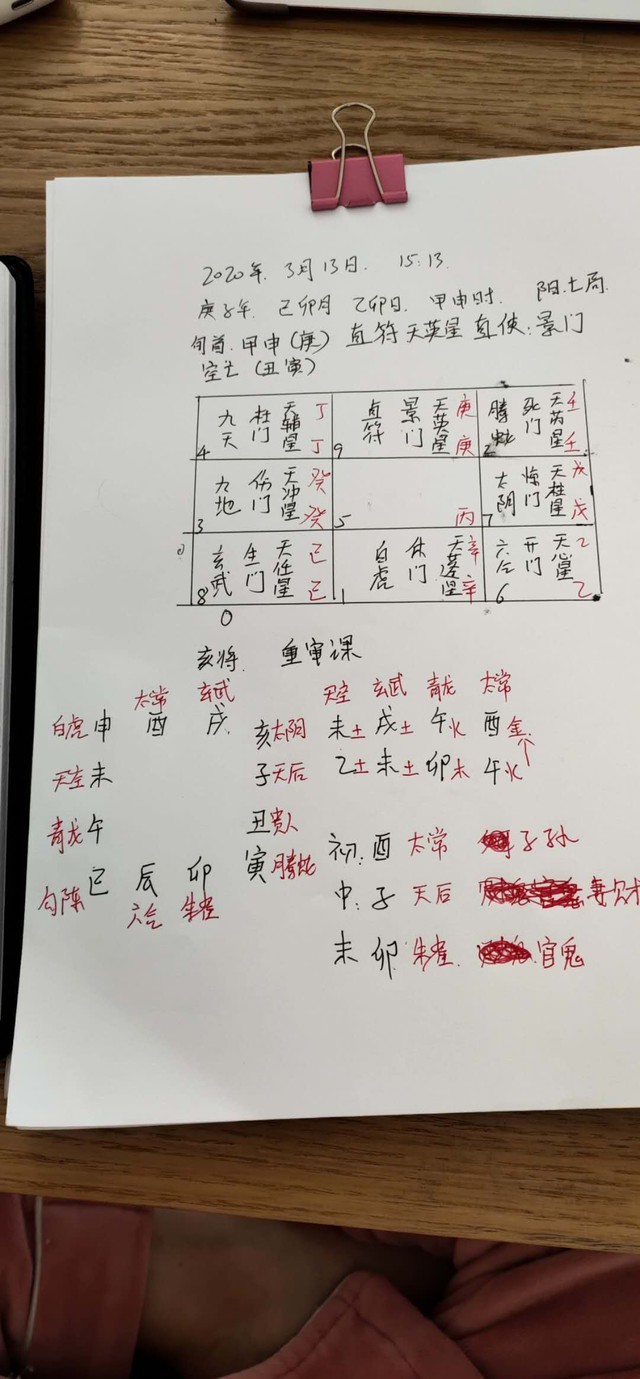 2020年 3月13日. 15:13.
庚子年. 己卯月 乙卯日. 甲申时. 阳七局.
旬首.甲申(庚) 直符天英星 直使:景门
空亡(丑寅)
九天 杜门 天辅星 丁 丁 4
直符 景门 天英星 庚 庚 9
腾蛇 死门 天芮星 壬 壬 2
九地 伤门 天冲星 癸 癸 3
丙 5
太阴 惊门 天柱星 戊 戊 7
玄武 生门 天任星 己 己 8
白虎 休门 天蓬星 辛 辛 1
六合 开门 天心星 乙 乙 6
0
0
亥将. 重审课
太常 玄武 天空 玄武 青龙 太常
白虎 申 酉 戌 亥 太阴 未土 戌土 午火 酉金
天空 未 子 天后 乙土 未土 卯木 午火
青龙 午 丑 贵人
初:酉 太常 子孙
勾陈 巳 辰 卯 寅 腾蛇
六合 朱雀
中:子 天后 妻财
末 卯 朱雀. 官鬼